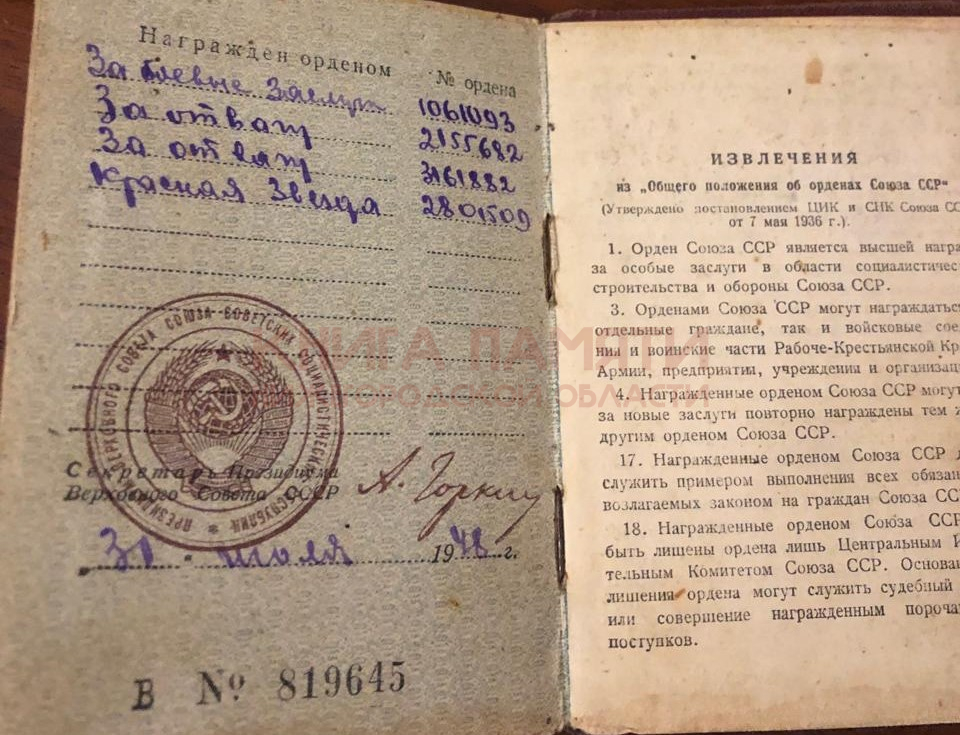 Награжден орденом № ордена
За боевые Заслуги 1061093
За отвагу 2155682
За отвагу 3161882
Красная Звезда 2801509
ПРЕЗИДИУМ ВЕРХОВНОГО СОВЕТА СОЮЗА СОВЕТСКИХ СОЦИАЛИСТИЧЕСКИХ РЕСПУБЛИК
Секретарь Президиума
Верховного Совета СССР А. Горкин
„31" июля 1948 г.
В № 819645
ИЗВЛЕЧЕНИЯ
из „Общего положения об орденах Союза ССР"
(Утверждено постановлением ЦИК и СНК Союза СС
от 7 мая 1936 г.).
1. Орден Союза ССР является высшей награ
за особые заслуги в области социалистичес
строительства и обороны Союза ССР.
3. Орденами Союза ССР могут награждатьс
отдельные граждане, так и войсковые сое
ния и воинские части Рабоче-Крестьянской Кр
Армии, предприятия, учреждения и организац
4. Награжденные орденом Союза ССР могут
за новые заслуги повторно награждены тем ж
другим орденом Союза ССР.
17. Награжденные орденом Союза ССР д
служить примером выполнения всех обязан
возлагаемых законом на граждан Союза СС
18. Награжденные орденом Союза ССР
быть лишены ордена лишь Центральным И
тельным Комитетом Союза ССР. Основан
лишения ордена могут служить судебный
или совершение награжденным пороча
поступков.
КНИГА ПАМЯТИ
ОБЛАСТИ